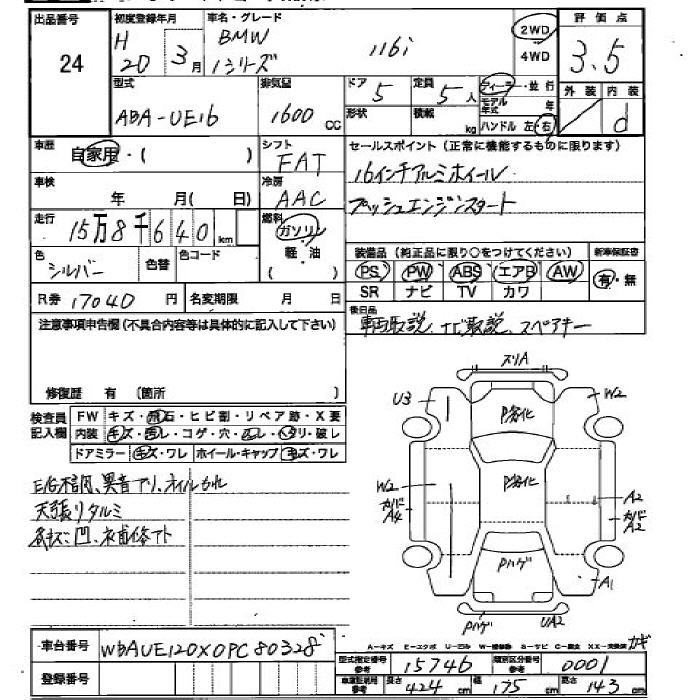 出品番号 24
初度登録年月 H20 3月
車名・グレード BMW 1シリーズ 116i
2WD 4WD
評価点 3.5
外装 内装 d
型式 ABA-UE16
排気量 1600 CC
ドア 5
定員 5人
形状 積載 kg
ディーラー・並行
モデル年式 年
ハンドル 左・右
車歴 自家用・( )
シフト FAT
セールスポイント(正常に機能するものに限ります)
16インチアルミホイール
プッシュエンジンスタート
車検 年 月( 日)
冷房 AAC
走行 15万8千640km
燃料 ガソリン 軽・油 ( )
色 シルバー 色替 色コード
装備品(純正品に限り○をつけてください) 新車保証書
PS PW ABS エアB AW 有・無
SR ナビ TV カワ
R券 17040円 名変期限 月 日
後日品
車両取説、ナビ取説、スペアキー
注意事項申告欄(不具合内容等は具体的に記入して下さい)
修復歴 有 〔箇所 〕
検査員記入欄
FW キズ・飛石・ヒビ割・リペア跡・X要
内装 キズ・汚レ・コゲ・穴・・破レ
ドアミラー キズ・ワレ ホイール・キャップ キズ・ワレ
E/G不調、異音アリ、オイルもれ
天張りタルミ
スリA
U3 W2
P劣化
P劣化
W2 カバA4
A2 カバA2
Pハゲ
A1
Pハゲ UA2
車台番号 WBAUE120X0PC80328
登録番号
型式指定番号 参考 15746
類別区分番号 参考 0001
長さ 424 cm 幅 175 cm 高さ 143 cm